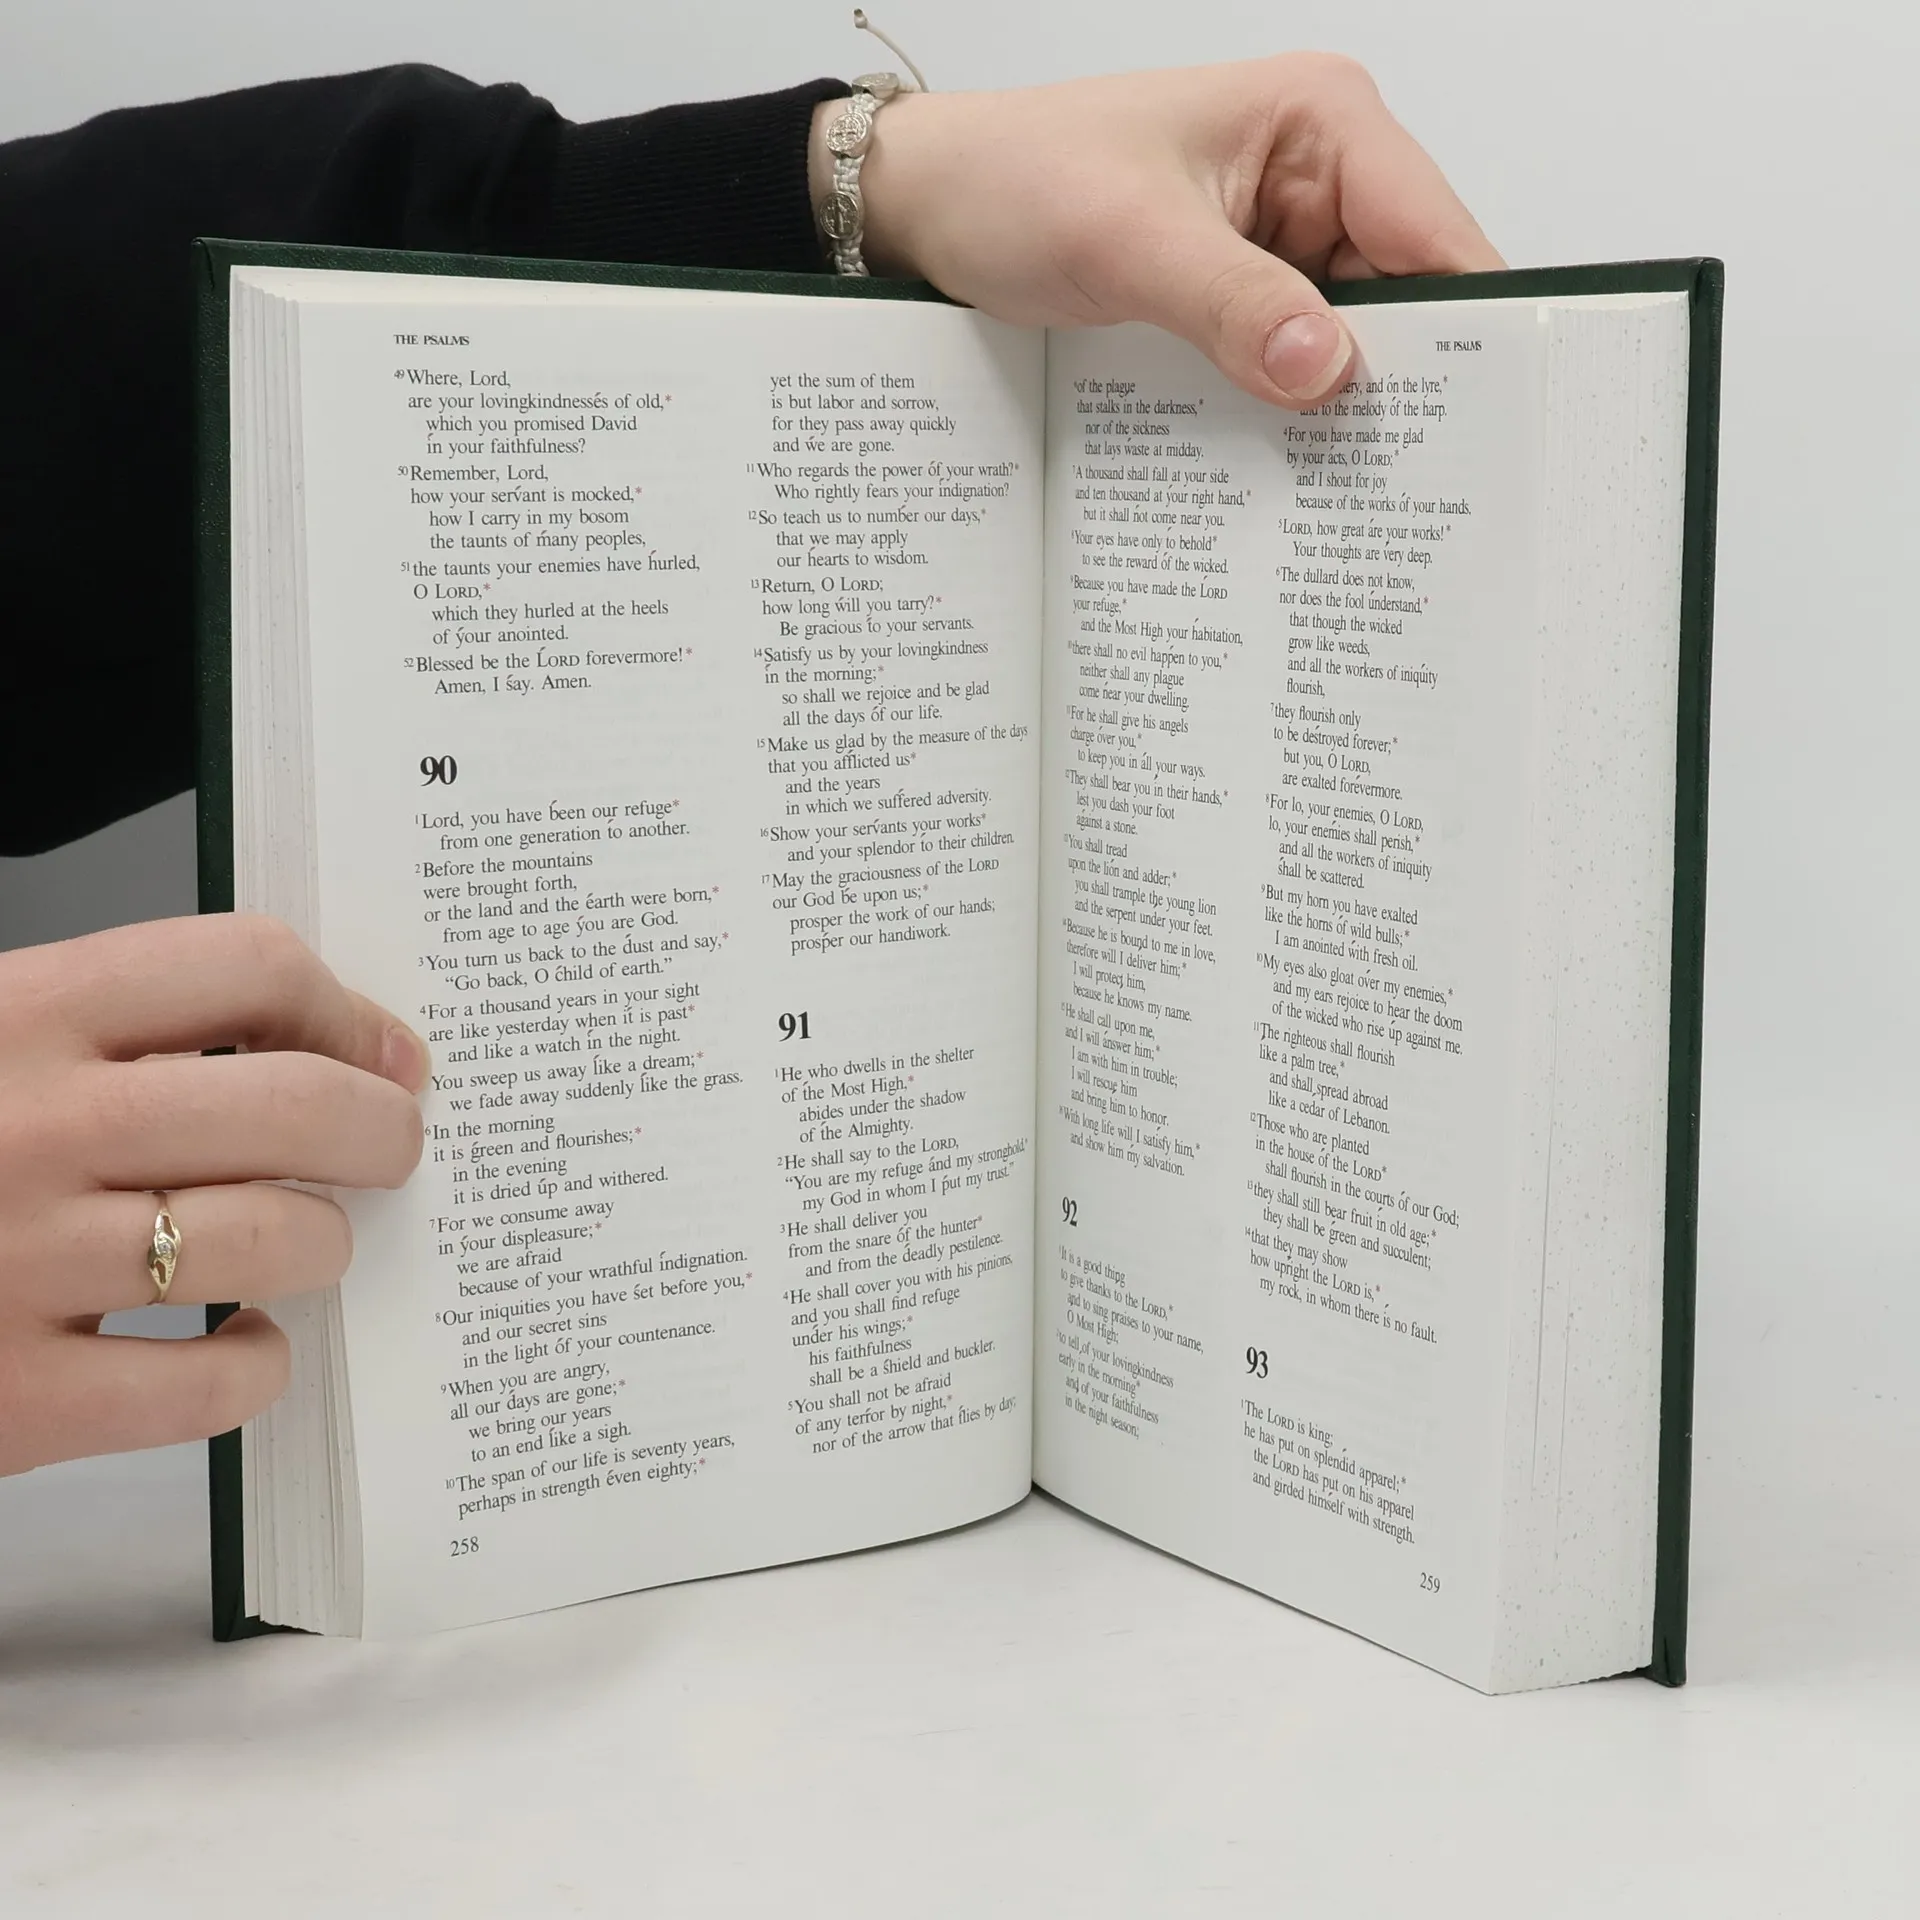 THE PSALMS
49 Where, Lord,
are your lovingkindnessés of old,*
which you promised David
ín your faithfulness?
50 Remember, Lord,
how your serv́ant is mocked,*
how I carry in my bosom
the taunts of ḿany peoples,
51 the taunts your enemies have h́urled,
O LORD,*
which they hurled at the heels
of ýour anointed.
52 Blessed be the ĹORD forevermore!*
Amen, I śay. Amen.
90
1 Lord, you have b́een our refuge*
from one generation t́o another.
2 Before the mountains
were brought forth,
or the land and the éarth were born,*
from age to age ýou are God.
3 You turn us back to the d́ust and say,*
“Go back, O ćhild of earth.”
4 For a thousand years in your sight
are like yesterday when it́ is past*
and like a watch ín the night.
You sweep us away ĺike a dream;*
we fade away suddenly ĺike the grass.
6 In the morning
it is ǵreen and flourishes;*
in the evening
it is dried úp and withered.
7 For we consume away
in ýour displeasure;*
we are afraid
because of your wrathful índignation.
8 Our iniquities you have śet before you,*
and our secret sins
in the light óf your countenance.
9 When you are angry,
all our d́ays are gone;*
we bring our years
to an end ĺike a sigh.
10 The span of our life is seventy years,
perhaps in strength éven eighty;*
258
yet the sum of them
is but labor and sorrow,
for they pass away quickly
and ẃe are gone.
11 Who regards the power óf your wrath?*
Who rightly fears your índignation?
12 So teach us to numb́er our days,*
that we may apply
our h́earts to wisdom.
13 Return, O LORD;
how long ẃill you tarry?*
Be gracious t́o your servants.
14 Satisfy us by your lovingkindness
ín the morning;*
so shall we rejoice and be glad
all the days óf our life.
15 Make us glad by the measure of the days
that you aff́licted us*
and the years
in which we suff́ered adversity.
16 Show your serv́ants your works*
and your splendor t́o their children.
17 May the graciousness of the LORD
our God b́e upon us;*
prosper the work of our hands;
prosṕer our handiwork.
91
1 He who dwells in the shelter
of t́he Most High,*
abides under the shadow
of t́he Almighty.
2 He shall say to the LORD,
“You are my refuge ánd my stronghold,*
my God in whom I ṕut my trust.”
3 He shall deliver you
from the snare óf the hunter*
and from the d́eadly pestilence.
4 He shall cover you with his pinions,
and you shall find refuge
und́er his wings;*
his faithfulness
shall be a śhield and buckler.
5 You shall not be afraid
of any teŕror by night,*
nor of the arrow that f́lies by day;
THE PSALMS
6 of the plague
that stalks ín the darkness,*
nor of the sickness
that lays ẃaste at midday.
7 A thousand shall fall at your side
and ten thousand at ýour right hand,*
but it shall ńot come near you.
8 Your eyes have only to behold*
to see the reward óf the wicked.
9 Because you have made the ĹORD
your refuge,*
and the Most High your h́abitation,
10 there shall no evil hapṕen to you,*
neither shall any plague
come ńear your dwelling.
11 For he shall give his angels
charge óver you,*
to keep you in áll your ways.
12 They shall bear you ín their hands,*
lest you dash your foot
ágainst a stone.
13 You shall tread
upon the líon and adder;*
you shall trample the young lion
and the serpent under your feet.
14 Because he is bound to me in love,
therefore will Í deliver him;*
I will protect him,
because he knows my name.
15 He shall call upon me,
and I will ánswer him;*
I am with him in trouble;
I will rescue him
and bring him to honor.
16 With long life will I śatisfy him,*
and show him ḿy salvation.
92
1 It is a good thing
to give thanks to the LORD,*
and to sing praises to your name,
O Most High;
2 to tell of your lovingkindness
early ín the morning*
and of your faithfulness
in the night season;
259
and ón the lyre,*
to the melody óf the harp.
4 For you have made me glad
by your ácts, O LORD;*
and I shout for joy
because of the works óf your hands.
5 LORD, how great áre your works!*
Your thoughts are v́ery deep.
6 The dullard does not know,
nor does the fool únderstand,*
that though the wicked
grow like weeds,
and all the workers of iniqúity
flourish,
7 they flourish only
to be deśtroyed forever;*
but you, O LORD,
are exalted forévermore.
8 For lo, your enemies, O LORD,
lo, your eneḿies shall perish,*
and all the workers of iniquity
śhall be scattered.
9 But my horn you have exalted
like the horns óf wild bulls;*
I am anointed ẃith fresh oil.
10 My eyes also gloat ovér my enemies,*
and my ears rejoice to hear the doom
of the wicked who rise úp against me.
11 The righteous shall flourish
like a palm tree,*
and shall spread abroad
like a cedár of Lebanon.
12 Those who are planted
in the house óf the LORD*
shall flourish in the courts óf our God;
13 they shall still bear fruit ín old age;*
they shall be ǵreen and succulent;
14 that they may show
how upŕight the LORD is,*
my rock, in whom there ís no fault.
93
1 The LORD is king;
he has put on splend́id apparel;*
the LORD has put on his apparel
and girded himself with strength.